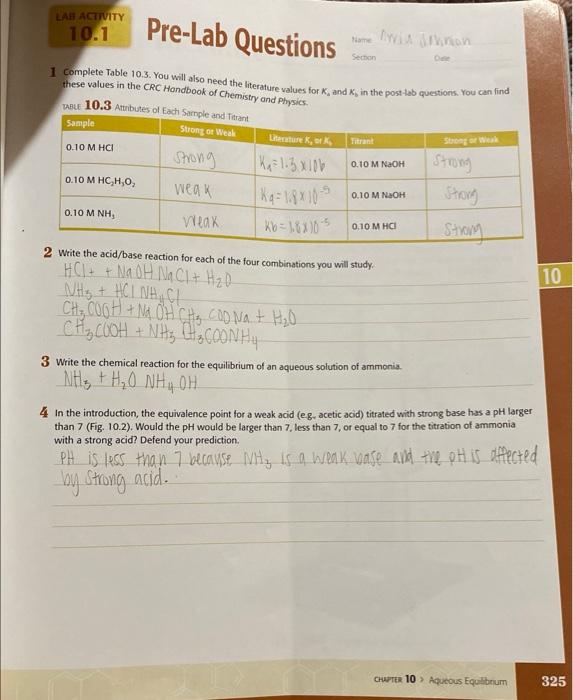 LAB ACTIVITY
10.1
Pre-Lab Questions
Name
Section
Date
1 Complete Table 10.3. You will also need the literature values for Ka and Kb in the post-lab questions. You can find
these values in the CRC Handbook of Chemistry and Physics.
TABLE 10.3 Attributes of Each Sample and Titrant
Sample Strong or Weak Literature Ka or Kb Titrant Strong or Weak
0.10 M HCl Strong Ka=1.3x106 0.10 M NaOH Strong
0.10 M HC2H3O2 weak Ka=1.8x10-5 0.10 M NaOH Strong
0.10 M NH3 weak Kb=1.8x10-5 0.10 M HCl Strong
2 Write the acid/base reaction for each of the four combinations you will study.
HCl+ + NaOH NaCl + H2O
NH3 + HCl NH4Cl
CH3COOH + NaOH CH3COONa + H2O
CH3COOH + NH3 CH3COONH4
10
3 Write the chemical reaction for the equilibrium of an aqueous solution of ammonia.
NH3 + H2O NH4OH
4 In the introduction, the equivalence point for a weak acid (e.g., acetic acid) titrated with strong base has a pH larger
than 7 (Fig. 10.2). Would the pH would be larger than 7, less than 7, or equal to 7 for the titration of ammonia
with a strong acid? Defend your prediction.
PH is less than 7 because NH3 is a weak base and the pH is affected
by Strong acid.
CHAPTER 10 > Aqueous Equilibrium 325